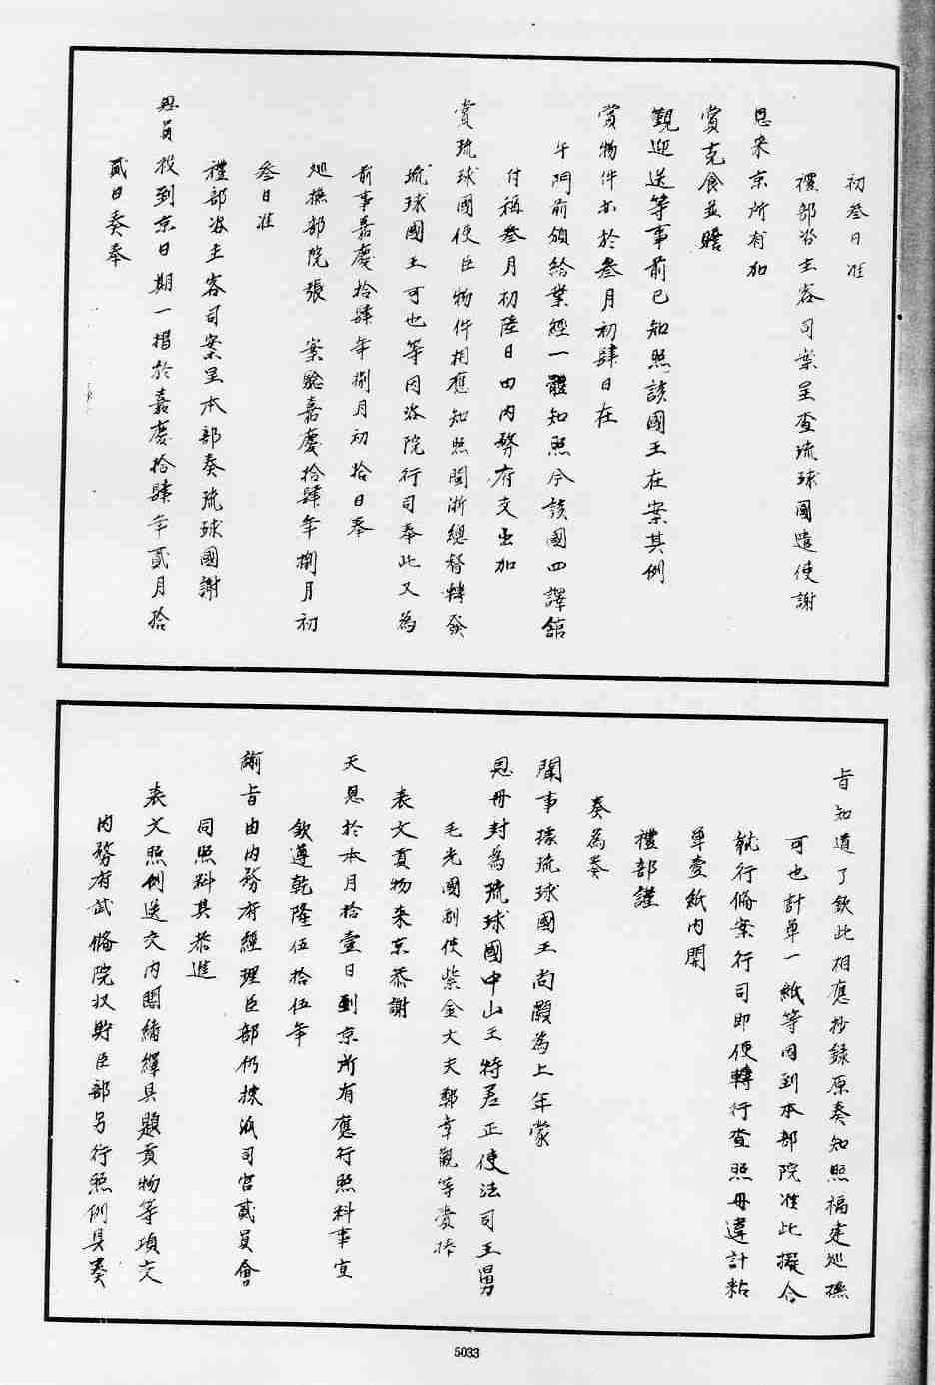 初叁日准
禮部咨主客司案呈查琉球國遣使謝
恩來京所有加
賞克食並瞻
覲迎送等事前已知照該國王在案其例
賞物件亦於叁月初肆日在
午門前頒給業經一體知照今該國四譯館
付稱叁月初陸日由内務府交出加
賞琉球國使臣物件相應知照閩浙總督轉發
琉球國王可也等因咨院行司奉此又為
前事嘉慶拾肆年捌月初拾日奉
廵撫部院張　案驗嘉慶拾肆年捌月初
叁日准
禮部咨主客司案呈本部奏琉球國謝
恩員投到京日期一摺於嘉慶拾肆年貳月拾
貳日奏奉
旨知道了欽此相應抄錄原奏知照福建廵撫
可也計单一紙等因到本部院准此擬合
就行俻案行司即便轉行查照毋違計粘
单壹紙内開
禮部謹
奏為奏
聞事據琉球國王尚灝為上年蒙
恩册封為琉球國中山王特差正使法司王舅
毛光國副使紫金大夫鄭章觀等賫捧
表文貢物來京恭謝
天恩於本月拾壹日到京所有應行照料事宜
欽遵乾隆伍拾伍年
諭旨由内務府經理臣部仍揀派司官貳員會
同照料其恭進
表文照例送交内閣繙繹具題貢物等項交
内務府武俻院收貯臣部另行照例具奏
5033